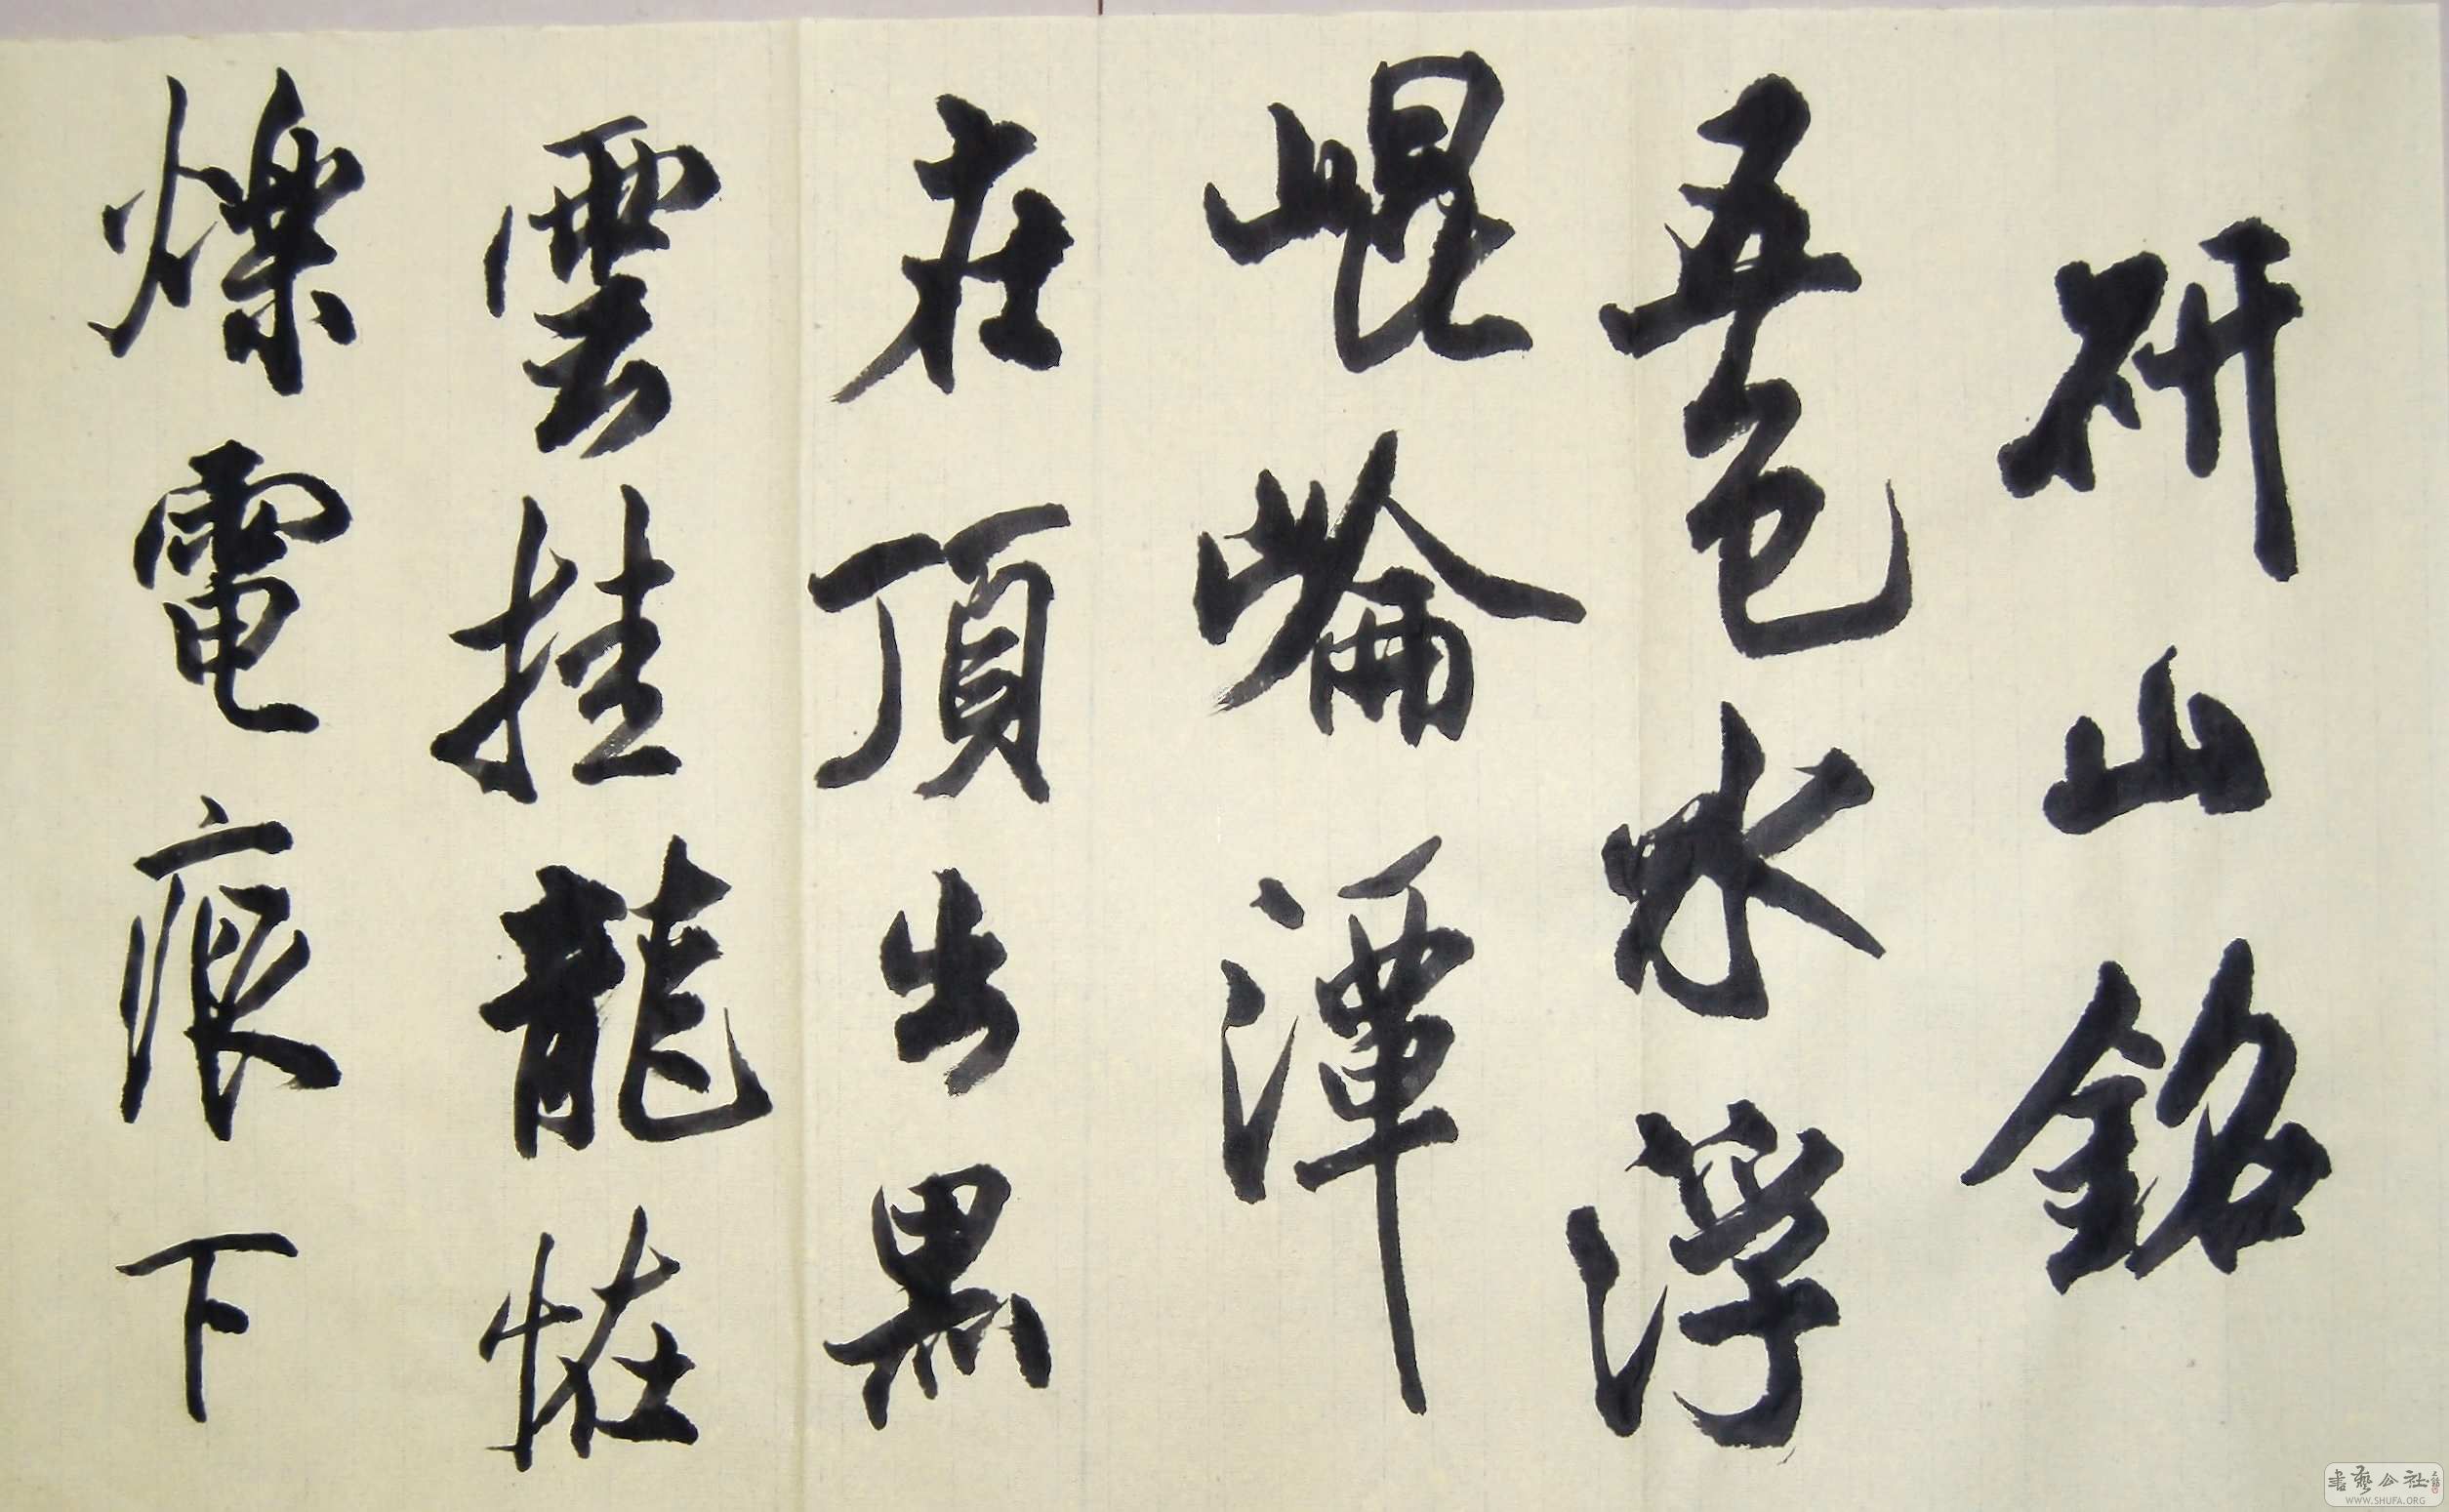 研山銘
五色水浮
崐崘潭
在頂出黑
雲挂龍恠
爍電痕下
書藝公社
WWW.SHUFA.ORG